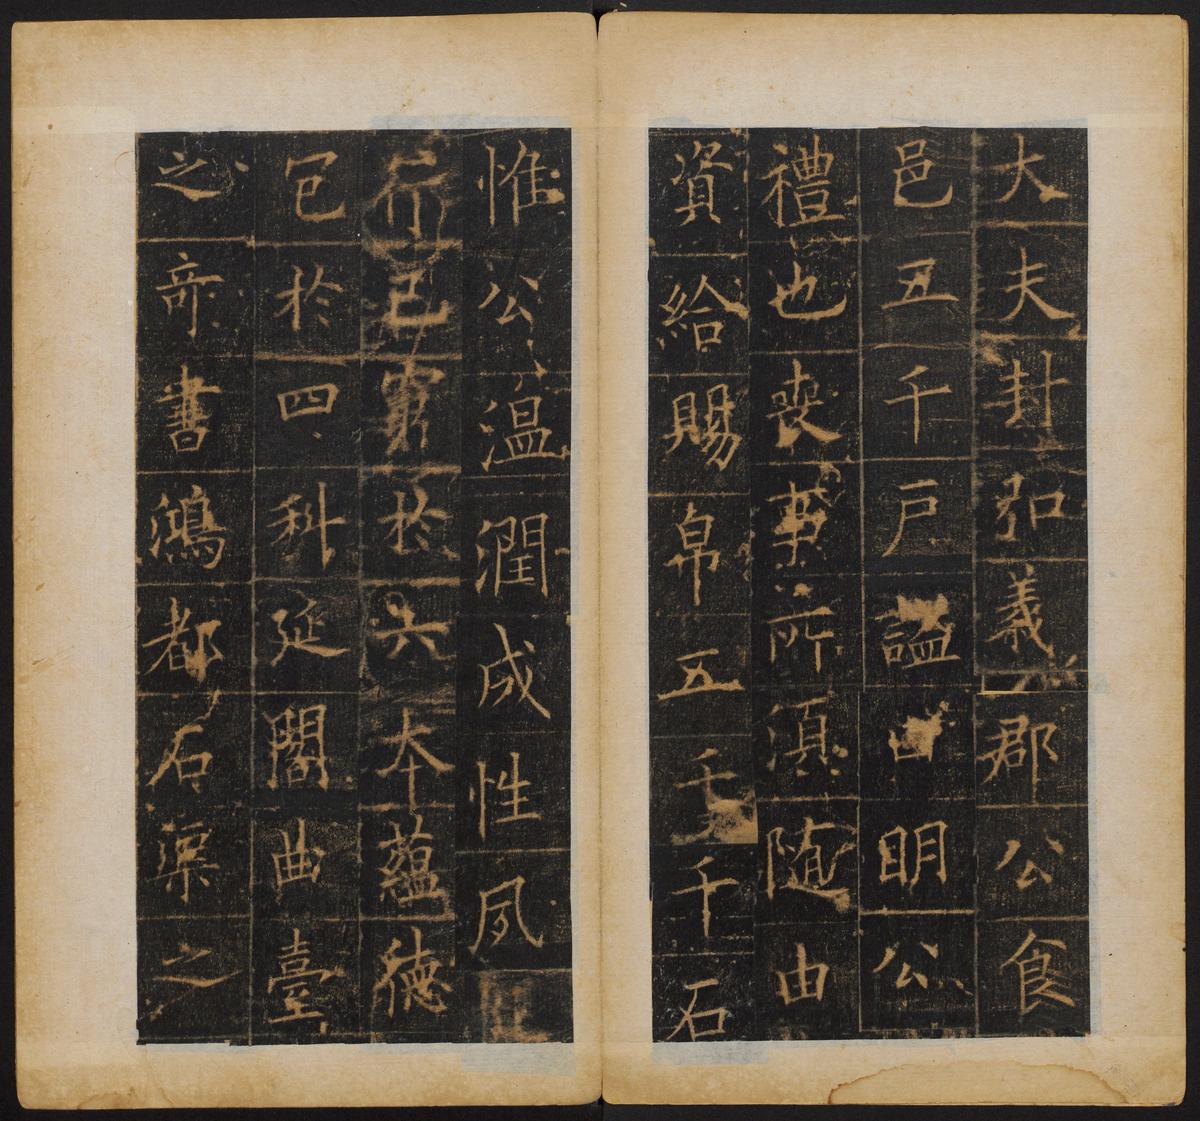 大夫封弘義郡公食
邑五千戶謚曰明公
禮也喪葬所須随由
資給賜帛五千千石
惟公温潤成性夙
行己實於六本蘊德
冠於四科延閣曲臺
之奇書鴻都石渠之